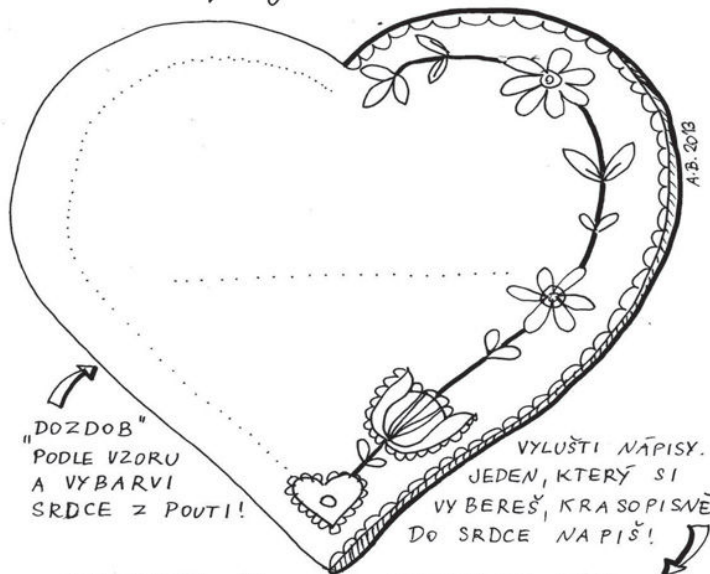 A.B. 2013
„DOZDOB“
PODLE VZORU
A VYBARVI
SRDCE Z POUTI!
VYLUŠTI NÁPISY.
JEDEN, KTERÝ SI
VYBEREŠ, KRASOPISNĚ
DO SRDCE NAPIŠ!